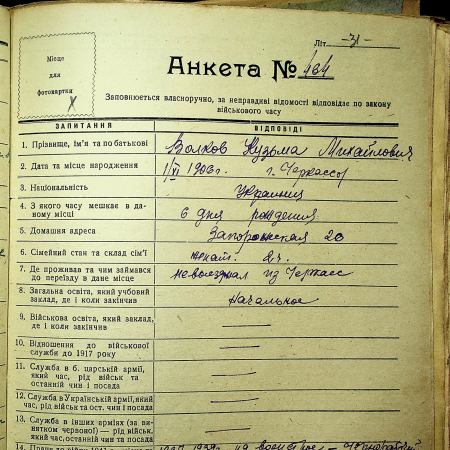 Літ. -31-
Місце
для
фотокартки
Анкета № 484
Заповнюється власноручно, за неправдиві відомості відповідає по закону
військового часу
ЗАПИТАННЯ ВІДПОВІДІ
1. Прізвище, ім'я та по батькові Волков Кузьма Михайлович
2. Дата та місце народження 1/VI 1906г. г. Черкассы
3. Національність Украинец
4. З якого часу мешкає в да-
ному місці
С дня рождения
5. Домашня адреса Запорожская 20
6. Сімейний стан та склад сім'ї женат. 2ч.
7. Де проживав та чим займався
до переїзду в дане місце
не выезжал из Черкасс
8. Загальна освіта, який учбовий
заклад, де і коли закінчив
Начальное
9. Військова освіта, який заклад,
де і коли закінчив
10. Відношення до військової
служби до 1917 року
11. Служба в б. царській армії,
який час, рід військ та
останній чин і посада
12. Служба в Українській армії, який
час, рід військ та ост. чин і посада
13. Служба в інших арміях (за ви-
нятком червоної) — рід військ,
який час, останній чин та посада